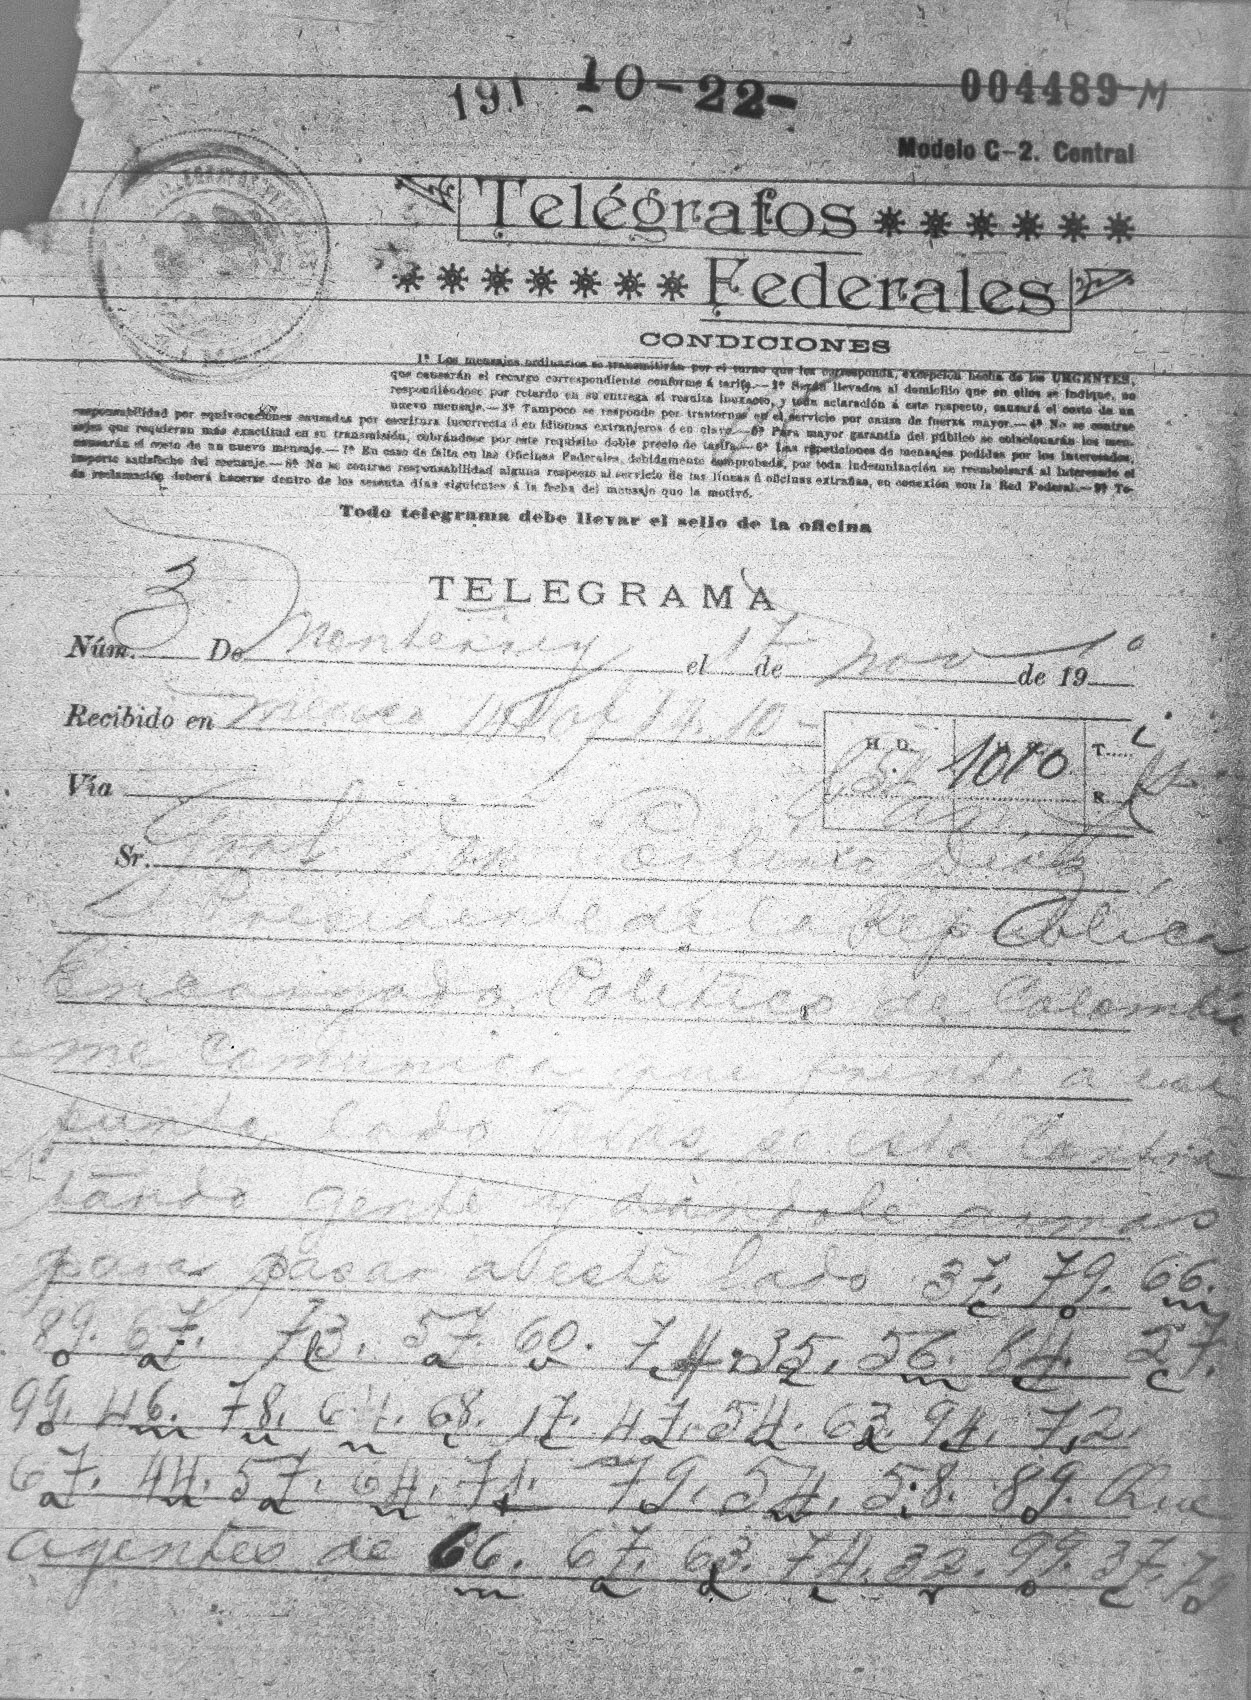 191 10-22-
004489 M
Modelo C-2. Central
Telégrafos
Federales
CONDICIONES
1ª Los mensajes ordinarios se transmitirán por el turno que les corresponda, excepción hecha de los URGENTES,
que causarán el recargo correspondiente conforme á tarifa.—2ª Serán llevados al domicilio que en ellos se indique, no
respondiéndose por retardo en su entrega si resulta inexacto, y toda aclaración á este respecto, causará el costo de un
nuevo mensaje.—3ª Tampoco se responde por trastornos en el servicio por causa de fuerza mayor.—4ª No se contrae
responsabilidad por equivocaciones causadas por escritura incorrecta ó en idiomas extranjeros ó en clave.—5ª Para mayor garantía del público se colacionarán los men-
sajes que requieran más exactitud en su transmisión, cobrándose por este requisito doble precio de tarifa.—6ª Las repeticiones de mensajes pedidas por los interesados,
causarán el costo de un nuevo mensaje.—7ª En caso de falta en las Oficinas Federales, debidamente comprobada, por toda indemnización se reembolsará al interesado el
importe satisfecho del mensaje.—8ª No se contrae responsabilidad alguna respecto al servicio de las líneas ú oficinas extrañas, en conexión con la Red Federal.—9ª To-
da reclamación deberá hacerse dentro de los sesenta días siguientes á la fecha del mensaje que la motivó.
Todo telegrama debe llevar el sello de la oficina
TELEGRAMA
Núm. 3 De Monterrey el 17 de nov de 19 10
Recibido en Mexico
H. D. 1010 T.
Vía R.
Sr. Gral Don Porfirio Diaz
Presidente de la República
Encargado Politico de Colombia
me comunica que frente a ese
punto lado Texas, se está contra
tando gente y dandole armas
para pasar a este lado 37. 79. 66.
c o m
89. 67. 73. 57. 60. 74. 35. 56. 64. 27.
o a l a v
99. 46. 78. 64. 68. 17. 47. 54. 63. 94. 72.
o m u n i
67. 44. 57. 64. 71. 79. 54. 58. 89. Que
a n a n t o
agentes de 66. 67. 63. 74. 32. 99. 37. 79
m a d e r o c o